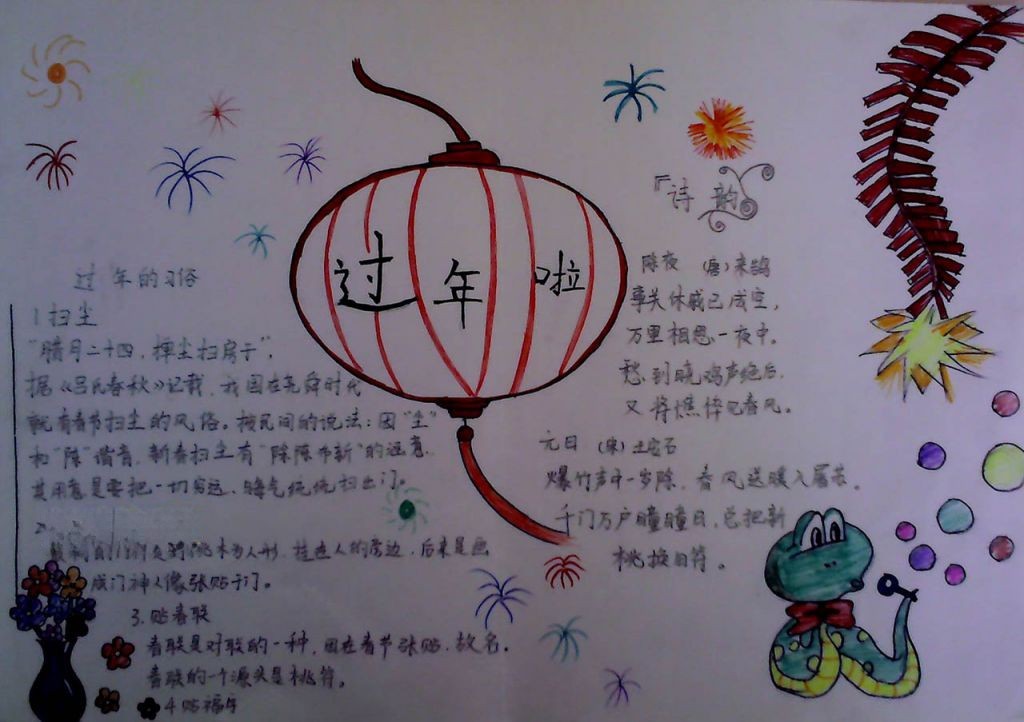 过年啦
过年的习俗
1 扫尘
"腊月二十四，掸尘扫房子"，
据《吕氏春秋》记载，我国在尧舜时代
就有春节扫尘的风俗。按民间的说法：因"尘"
和"陈"谐音，新春扫尘有"除陈布新"的涵意，
其用意是要把一切穷运、晦气统统扫出门。
2
桃木为人形，挂在人的旁边，后来是画
成门神人像张贴于门。
3. 贴春联
春联是对联的一种，因在春节张贴，故名。
春联的一个源头是桃符。
4 贴福字
『诗韵
除夜 (唐)来鹄
事关休戚已成空，
万里相思一夜中。
愁到晓鸡声绝后，
又将憔悴见春风。
元日 (宋)王安石
爆竹声中一岁除，春风送暖入屠苏。
千门万户曈曈日，总把新
桃换旧符。